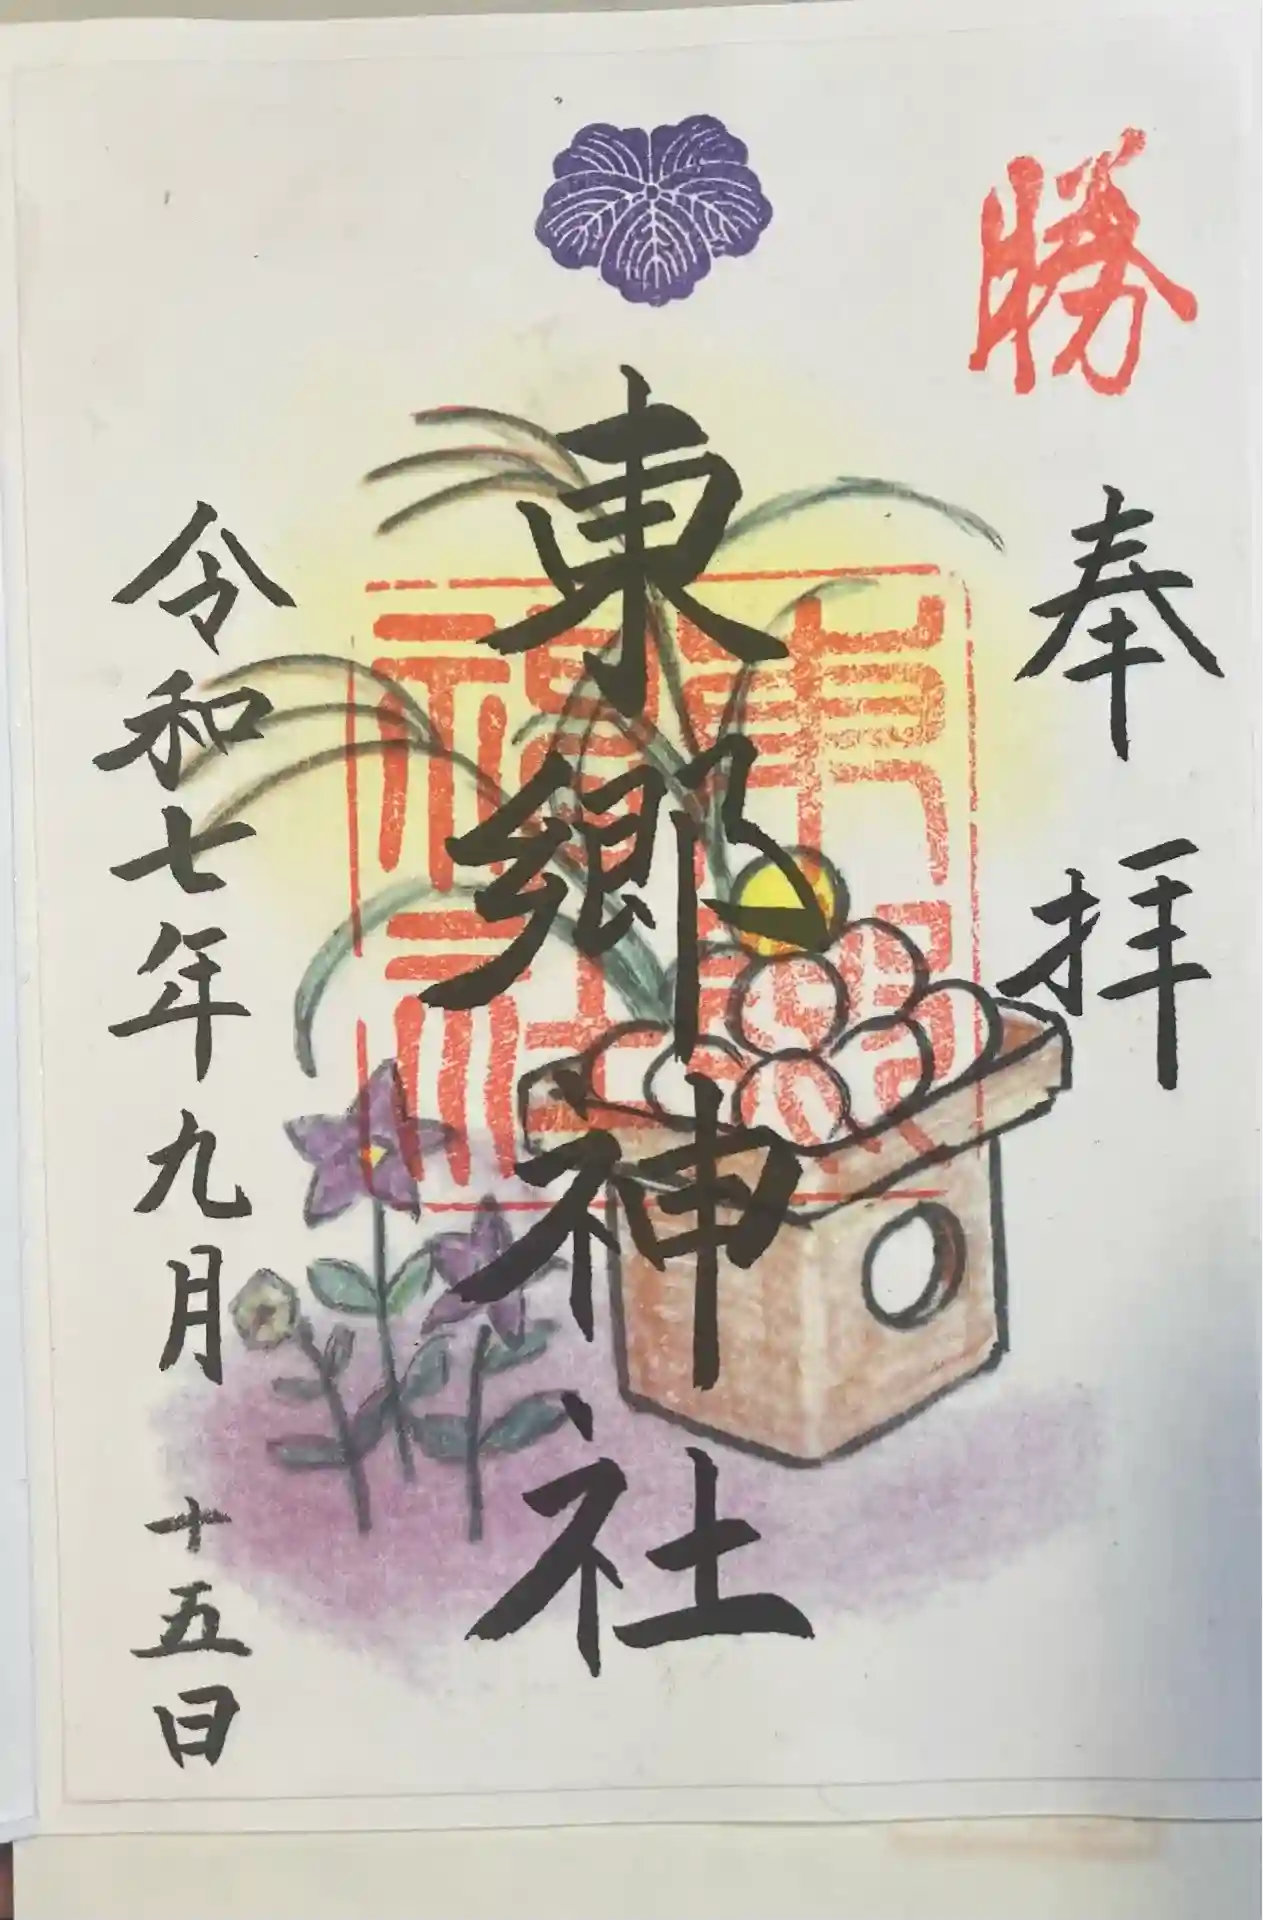 勝
奉拝
東郷神社
東郷神社
令和七年九月十五日